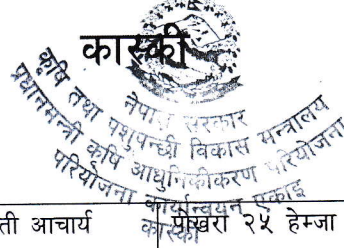 कास्की
नेपाल सरकार
कृषि तथा पशुपन्छी विकास मन्त्रालय
प्रधानमन्त्री कृषि आधुनिकीकरण परियोजना
परियोजना कार्यान्वयन एकाइ
कास्की
ती आचार्य पोखरा २५ हेम्जा